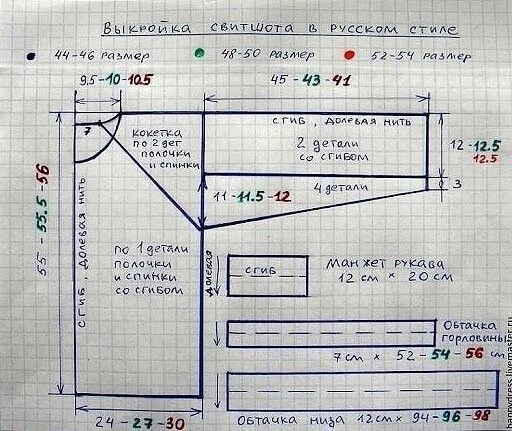 Выкройка свитшота в русском стиле
44-46 размер
48-50 размер
52-54 размер
9,5-10-10.5
45-43-41
7
кокетка
по 2 дет
полочки
и спинки
сгиб, долевая нить
2 детали
со сгибом
12-12.5
12.5
4 детали
3
11-11.5-12
55-55.5-56
сгиб, долевая нить
по 1 детали
полочки
и спинки
со сгибом
долевая
сгиб
Манжет рукава
12 см × 20 см
Обтачка
горловины
7 см × 52-54-56 см
24-27-30
Обтачка низа 12см × 94-96-98
happydress.livemaster.ru